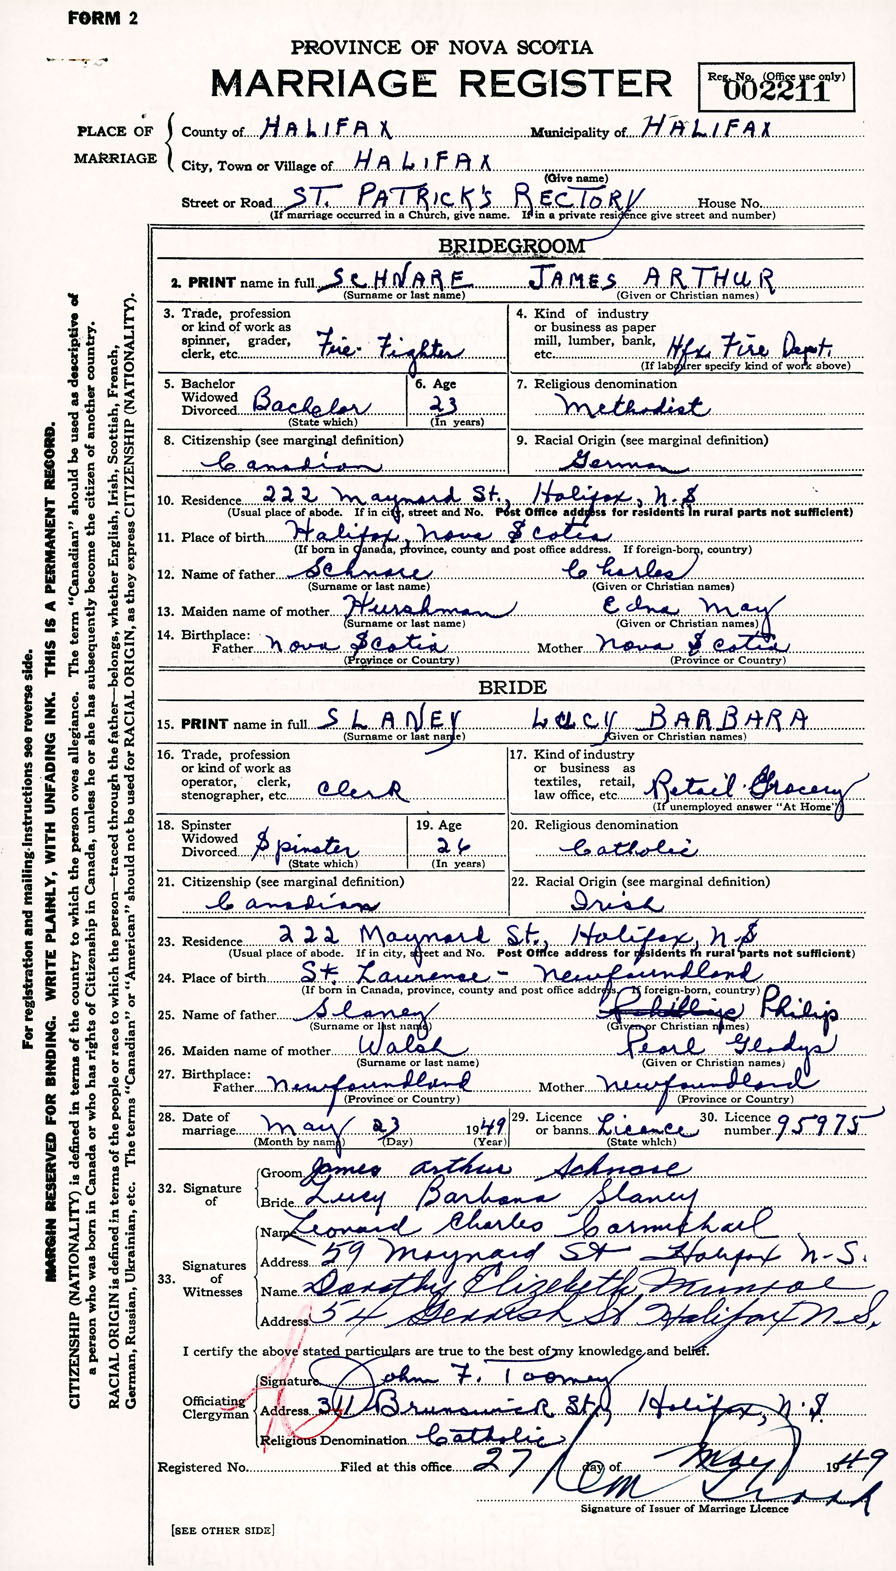 FORM 2
PROVINCE OF NOVA SCOTIA
MARRIAGE REGISTER
Reg. No. (Office use only)
002211
PLACE OF MARRIAGE
County of HALIFAX Municipality of HALIFAX
City, Town or Village of HALIFAX
(Give name)
Street or Road ST. PATRICK'S RECTORY House No.
(If marriage occurred in a Church, give name. If in a private residence give street and number)
BRIDEGROOM
2. PRINT name in full SCHNARE JAMES ARTHUR
(Surname or last name) (Given or Christian names)
3. Trade, profession or kind of work as spinner, grader, clerk, etc. Fire-Fighter
4. Kind of industry or business as paper mill, lumber, bank, etc. Hfx Fire Dept.
(If labourer specify kind of work above)
5. Bachelor Widowed Divorced Bachelor
(State which)
6. Age 23
(In years)
7. Religious denomination Methodist
8. Citizenship (see marginal definition) Canadian
9. Racial Origin (see marginal definition) German
10. Residence 222 Maynard St., Halifax, N.S
(Usual place of abode. If in city, street and No. Post Office address for residents in rural parts not sufficient)
11. Place of birth Halifax, Nova Scotia
(If born in Canada, province, county and post office address. If foreign-born, country)
12. Name of father Schnare Charles
(Surname or last name) (Given or Christian names)
13. Maiden name of mother Hurshman Edna May
(Surname or last name) (Given or Christian names)
14. Birthplace: Father Nova Scotia Mother Nova Scotia
(Province or Country) (Province or Country)
BRIDE
15. PRINT name in full SLANEY LUCY BARBARA
(Surname or last name) (Given or Christian names)
16. Trade, profession or kind of work as operator, clerk, stenographer, etc. Clerk
17. Kind of industry or business as textiles, retail, law office, etc. Retail Grocery
(If unemployed answer "At Home")
18. Spinster Widowed Divorced Spinster
(State which)
19. Age 26
(In years)
20. Religious denomination Catholic
21. Citizenship (see marginal definition) Canadian
22. Racial Origin (see marginal definition) Irish
23. Residence 222 Maynard St., Halifax, N.S
(Usual place of abode. If in city, street and No. Post Office address for residents in rural parts not sufficient)
24. Place of birth St. Laurense - Newfoundland
(If born in Canada, province, county and post office address. If foreign-born, country)
25. Name of father Slaney Phillip Philip
(Surname or last name) (Given or Christian names)
26. Maiden name of mother Walsh Pearl Gladys
(Surname or last name) (Given or Christian names)
27. Birthplace: Father Newfoundland Mother Newfoundland
(Province or Country) (Province or Country)
28. Date of marriage May 23 1949
(Month by name) (Day) (Year)
29. Licence or banns. Licence
(State which)
30. Licence number. 95975
32. Signature of
Groom James Arthur Schnare
Bride Lucy Barbara Slaney
33. Signatures of Witnesses
Name Leonard Charles Carmichael
Address 59 Maynard St Halifax N-S.
Name Dorothy Elizebeth Munroe
Address 54 Gerrish St Halifax N.S.
I certify the above stated particulars are true to the best of my knowledge and belief.
Officiating Clergyman
Signature John F. Toomey
Address Brunswick St., Halifax, N.S.
Religious Denomination Catholic
Registered No. Filed at this office 27 day of May 1949
Signature of Issuer of Marriage Licence
[SEE OTHER SIDE]
For registration and mailing-instructions see reverse side.
MARGIN RESERVED FOR BINDING. WRITE PLAINLY, WITH UNFADING INK. THIS IS A PERMANENT RECORD.
CITIZENSHIP (NATIONALITY) is defined in terms of the country to which the person owes allegiance. The term "Canadian" should be used as descriptive of
a person who was born in Canada or who has rights of Citizenship in Canada, unless he or she has subsequently become the citizen of another country.
RACIAL ORIGIN is defined in terms of the people or race to which the person—traced through the father—belongs, whether English, Irish, Scottish, French,
German, Russian, Ukrainian, etc. The terms "Canadian" or "American" should not be used for RACIAL ORIGIN, as they express CITIZENSHIP (NATIONALITY).